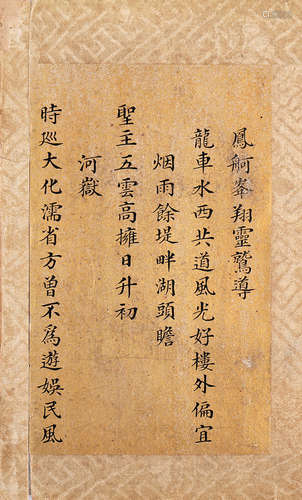 鳳舸峯翔靈鷲導
龍車水西共道風光好樓外偏宜
烟雨餘堤畔湖頭瞻
聖主五雲高擁日升初
河嶽
時廵大化濡省方曾不爲遊娛民風